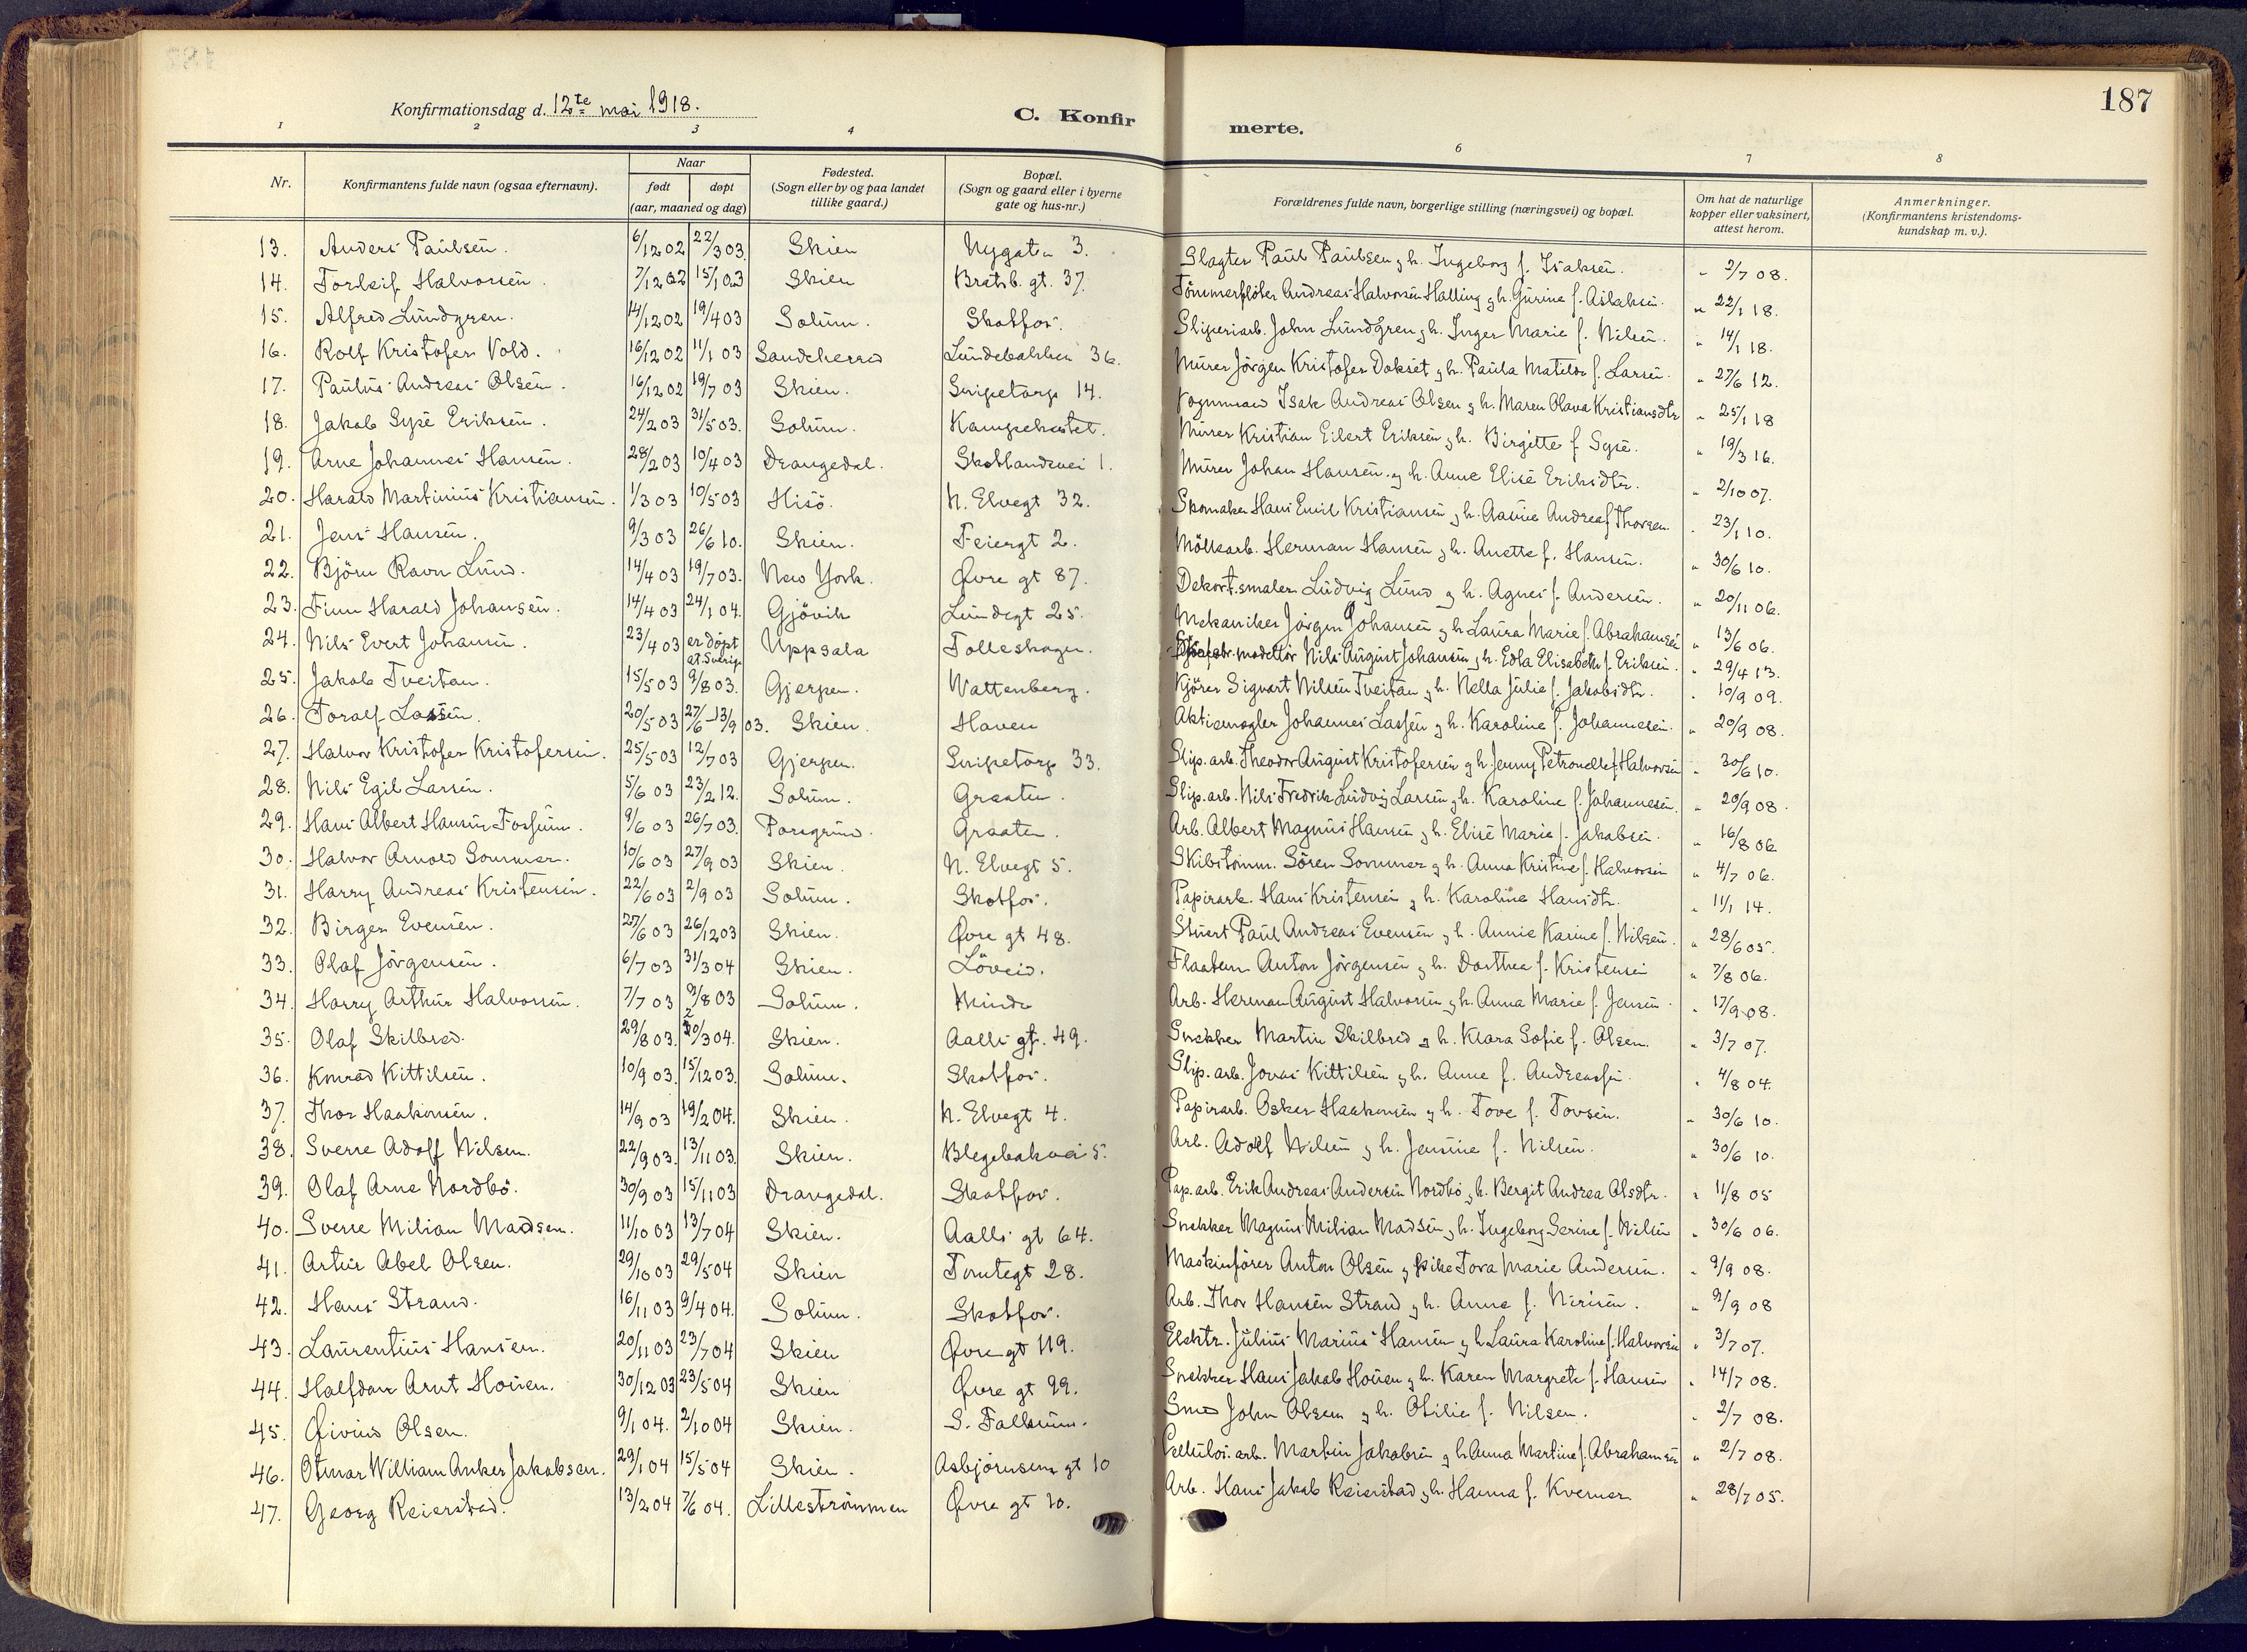 187
Konfirmationsdag d. 12te mai 1918.
C. Konfir merte.
1 2 3 4 6 7 8
Nr. Konfirmantens fulde navn (ogsaa efternavn). Naar født døpt (aar, maaned og dag) Fødested. (Sogn eller by og paa landet tillike gaard.) Bopæl. (Sogn og gaard eller i byerne gate og hus-nr.) Forældrenes fulde navn, borgerlige stilling (næringsvei) og bopæl. Om hat de naturlige kopper eller vaksinert, attest herom. Anmerkninger. (Konfirmantens kristendoms-kundskap m. v.).
13. Anders Paulsen. 6/12 02 22/3 03. Skien Nygaten 3. Slagter Paul Paulsen g h. Ingeborg f. Isaksen. " 2/7 08.
14. Torleif Halvorsen. 7/12 02 15/1 03 Skien Bratsb. gt. 37. Tömmerfløter Andreas Halvorsen Halling g h. Gurine f. Aslaksen. " 22/1 18.
15. Alfred Lundgren. 14/12 02 19/4 03 Solum. Skotfos. Sliperiarb. John Lundgren g h. Inger Marie f. Nilsen. " 14/1 18.
16. Rolf Kristofer Vold. 16/12 02 11/1 03 Sandeherred Lundebakken 36. Murer Jörgen Kristofer Dokset g h. Paula Matilde f. Larsen. " 27/6 12.
17. Paulus Andreas Olsen. 16/12 02 19/7 03 Skien. Snipetorp 14. Vognmand Isak Andreas Olsen g h. Maren Olava Kristiansdtr " 25/1 18
18. Jakob Sype Eriksen. 24/2 03 31/5 03. Solum. Kampehestet. Murer Kristian Eilert Eriksen g h. Birgitte f. Sype. " 19/3 16.
19. Arne Johannes Hansen. 28/2 03 10/4 03 Drangedal. Skotlandsvei 1. Murer Johan Hansen g h. Anne Elise Eriksdtr. " 2/10 07.
20. Harald Martinius Kristiansen. 1/3 03 10/5 03 Hisö. N. Elvegt 32. Skomaker Hans Emil Kristiansen g h. Aasine Andrea f. Thorsen. 23/1 10.
21. Jens Hansen. 9/3 03 26/6 10. Skien. Feiergt 2. Möllearb. Herman Hansen g h. Anette f. Hansen. " 30/6 10.
22. Björn Ravn Lund. 14/4 03 19/7 03. New York. Øvre gt 87. Dekort.smaler Ludvig Lund g h. Agnes f. Andersen. " 20/11 06.
23. Finn Harald Johansen. 14/4 03 24/1 04. Gjövik Lundegt 25. Mekaniker Jörgen Johansen g h Laura Marie f. Abrahamsen " 13/6 06.
24. Nils Evert Johansen. 23/4 03 er döpt at. Sverige Uppsala Follestagen. modellör Nils August Johansen g h. Edla Elisabeth f. Eriksen. " 29/4 13.
25. Jakob Tveitan. 15/5 03 9/8 03. Gjerpen. Wattenberg. Kjörer Sigvart Nilsen Tveitan g h. Nella Julie f. Jakobsdtr. " 10/9 09.
26. Toralf Lassen. 20/5 03 27/6 - 13/9 03. Skien. Haven Aktiemegler Johannes Lassen g h. Karoline f. Johannesen. " 20/9 08.
27. Halvor Kristofer Kristofersen. 25/5 03 12/7 03 Gjerpen. Snipetorp 33. Slip. arb. Theodor August Kristofersen g h Jenny Petronelle f. Halvorsen " 30/6 10.
28. Nils Egil Larsen. 5/6 03 23/2 12. Solum. Graaten. Slip. arb. Nils Fredrik Ludvig Larsen g h. Karoline f. Johannesen. " 20/9 08.
29. Hans Albert Hansen Fossum. 9/6 03 26/7 03. Porsgrund. Graaten. Arb. Albert Magnus Hansen g h. Elise Marie f. Jakobsen. " 16/8 06
30. Halvor Arnold Sommer. 10/6 03 27/9 03 Skien. N. Elvegt 5. Skibstömm. Sören Sommer g h. Anna Kristine f. Halvorsen " 4/7 06.
31. Harry Andreas Kristensen. 22/6 03 2/9 03 Solum. Skotfos. Papirarb. Hans Kristensen g h. Karoline Hansdtr. " 11/1 14.
32. Birger Evensen. 27/6 03 26/12 03 Skien. Øvre gt 48. Stuert Paul Andreas Evensen g h. Annie Karine f. Nilsen. " 28/6 05.
33. Olaf Jörgensen. 6/7 03 31/3 04 Skien. Löveid. Flaatem. Anton Jörgensen g h. Dorthea f. Kristensen " 7/8 06.
34. Harry Arthur Halvorsen. 7/7 03 9/8 03 Solum. Minde Arb. Herman August Halvorsen g h. Anna Marie f. Jensen. " 17/9 08.
35. Olaf Skilbred. 29/8 03. 20/3 04. Skien. Aalls gt. 49. Snekker Martin Skilbred g h. Klara Sofie f. Olsen. " 3/7 07.
36. Konrad Kittilsen. 10/9 03. 15/12 03. Solum. Skotfos. Slip. arb. Jonas Kittilsen g h. Anne f. Andreassen. " 4/8 04.
37. Thor Haakonsen. 14/9 03 19/2 04. Skien. N. Elvegt 4. Papirarb. Oskar Haakonsen g h. Tove f. Tovsen. " 30/6 10.
38. Sverre Adolf Nilsen. 22/9 03. 13/11 03. Skien. Blegebakvei 5. Arb. Adolf Nilsen g h. Jensine f. Nilsen. " 30/6 10.
39. Olaf Arne Nordbö. 30/9 03 15/11 03 Drangedal. Skotfos. Pap. arb. Erik Andreas Andersen Nordbö g h. Bergit Andrea Olsdtr. " 11/8 05
40. Sverre Milian Madsen. 11/10 03 13/7 04 Skien. Aalls gt 64. Snekker Magnus Milian Madsen g h. Ingeborg Serine f. Nilsen " 30/6 06.
41. Artur Abel Olsen. 29/10 03 29/5 04 Skien Tomtegt 28. Maskinfører Anton Olsen g Pike Tora Marie Andersen. " 9/9 08.
42. Hans Strand. 16/11 03 9/4 04. Solum. Skotfos. Arb. Thor Hansen Strand g h. Anne f. Nirisen. " 9/9 08
43. Laurentius Hansen. 20/11 03 23/7 04 Skien Øvre gt 119. Elektr. Julius Marius Hansen g h Laura Karoline f. Halvorsen " 3/7 07.
44. Halfdan Arnt Houen. 30/12 03 23/5 04 Skien Øvre gt 99. Snekker Hans Jakob Houen g h. Karen Margrete f. Hansen " 14/7 08.
45. Øivind Olsen. 9/1 04. 2/10 04 Skien. S. Falkum. Smed John Olsen g h. Otilie f. Nilsen. " 2/7 08.
46. Otmar William Anker Jakobsen. 29/1 04 15/5 04 Skien. Asbjörnsens gt 10 Cellulos. arb. Martin Jakobsen g h Anna Martine f. Abrahamsen " 2/7 08.
47. Georg Reierstad. 13/2 04 7/6 04. Lilleströmmen Øvre gt 10. Arb. Hans Jakob Reierstad g h. Hanna f. Kverner " 28/7 05.